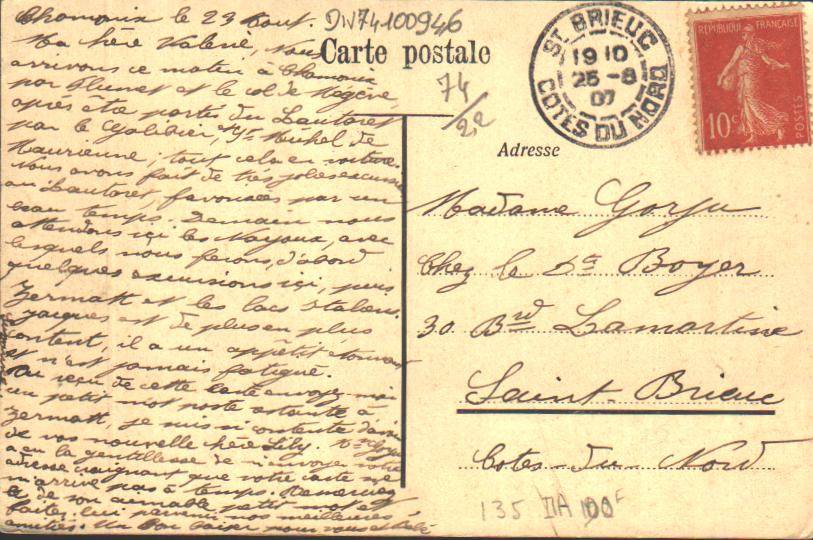 Chamonix le 23 Aout.
Ma chère Valérie, Nous
arrivons ce matin à Chamonix
par Flumet et le col de Megève,
après être partis du Lautaret
par le Galibier, St Michel de
Maurienne; tout cela en voiture.
Nous avons fait de très jolies excursions
au Lautaret, favorisées par un
beau temps. Demain nous
attendons ici les Nayoux, avec
lesquels nous ferons, d'abord
quelques excursions ici, puis
Zermatt et les lacs Italiens.
Jacques est de plus en plus
content, il a un appétit étonnant
et n'est jamais fatigué.
Au reçu de cette carte envoyez-moi
un petit mot poste restante à
Zermatt, je suis si contente d'avoir
de vos nouvelle chère Lily.
a eu la gentillesse de m'envoyer votre
adresse craignant que votre carte ne
m'arrive pas à temps. Remerciez
la de son aimable petit mot et
faites lui parvenir nos meilleures
amitiés. Un bon baiser pour vous et bébé
DN74100946
Carte postale
74/2,2
ST BRIEUC
19 10
25 -8
07
COTES DU NORD
REPUBLIQUE FRANÇAISE
10c
POSTES
Adresse
Madame Gorju
Chez le Dr Boyer
30 Bvd Lamartine
Saint-Brieuc
Cotes-du-Nord
135 IIA